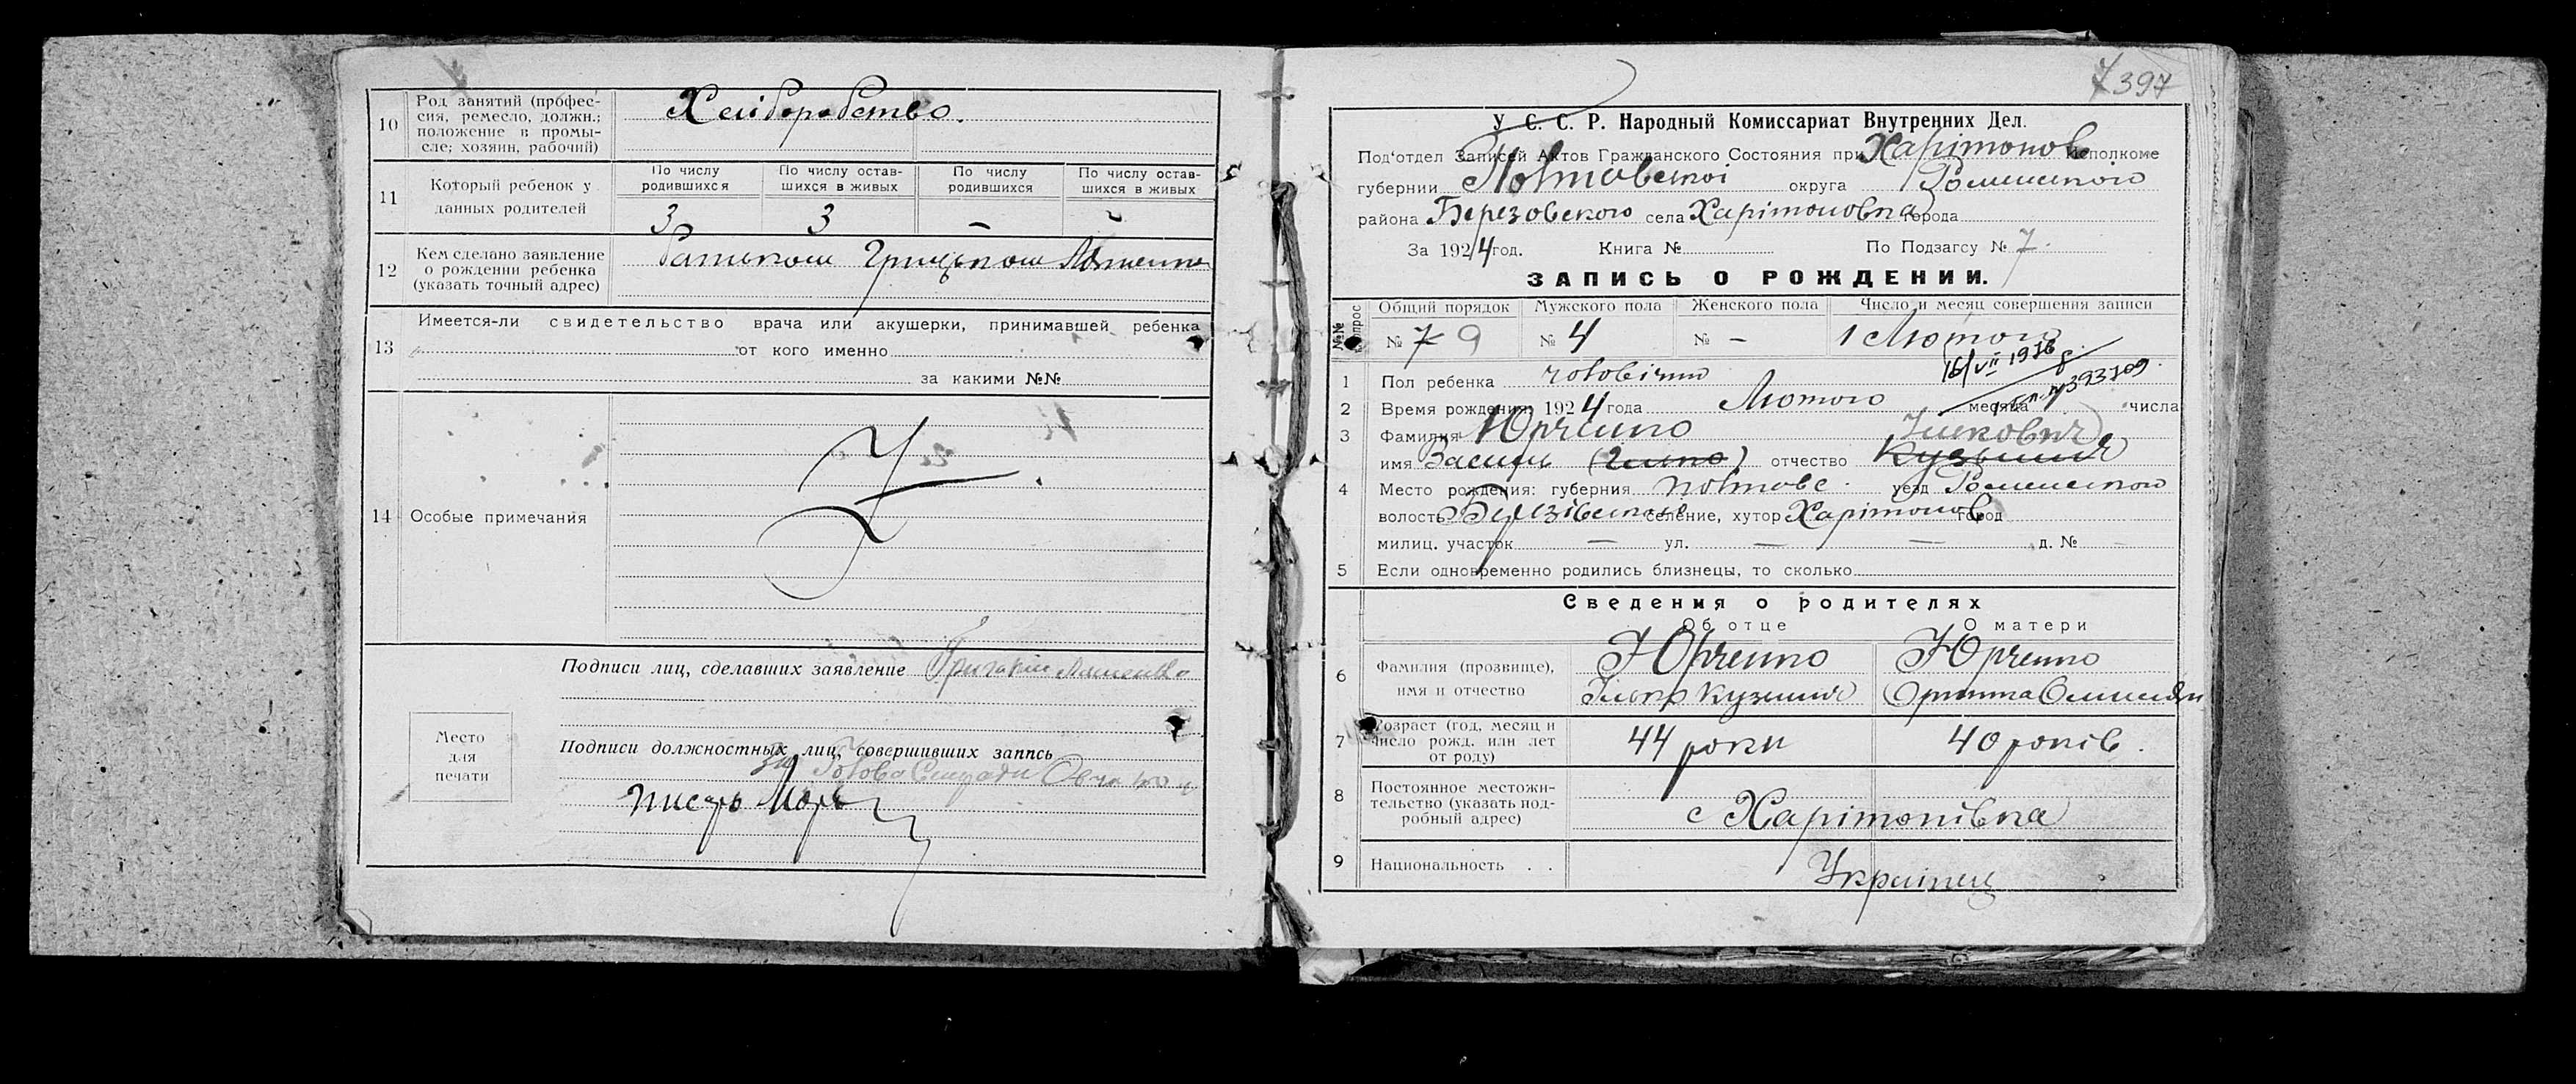 10 Род занятий (профес-
сия, ремесло, должн.;
положение в промы-
сле; хозяин, рабочий)
Хліборобство.
11 Который ребенок у
данных родителей
По числу
родившихся
По числу остав-
шихся в живых
По числу
родившихся
По числу остав-
шихся в живых
3 3 – –
12 Кем сделано заявление
о рождении ребенка
(указать точный адрес)
Грицьком
13 Имеется-ли свидетельство врача или акушерки, принимавшей ребенка
от кого именно
за какими №№
14 Особые примечания
Подписи лиц, сделавших заявление
Место
для
печати
Подписи должностных лиц, совершивших запись
Голова Сільради
Писарь
7 397
У. С. С. Р. Народный Комиссариат Внутренних Дел.
Под'отдел Записей Актов Гражданского Состояния при Харітонов исполкоме
губернии Полтавської округа Роменського
района Березовского села Харітоновка города
За 1924 год. Книга № По Подзагсу № 7.
ЗАПИСЬ О РОЖДЕНИИ.
№№ вопрос
Общий порядок Мужского пола Женского пола Число и месяц совершения записи
№ 7 9 № 4 № – 1 Лютого
16/VII 1976 г.
№ 393709
1 Пол ребенка чоловічий
2 Время рождения: 1924 года Лютого месяца 1 числа
3 Фамилия Юрченко Ількович
имя Василь (Ілько) отчество Кузьмич
4 Место рождения: губерния Полтавс. уезд Роменського
волость Березівської селение, хутор Харітонов город
милиц. участок — ул. — — д. № –
5 Если одновременно родились близнецы, то сколько
Сведения о родителях
Об отце О матери
6 Фамилия (прозвище),
имя и отчество
Юрченко Юрченко
Ілько Кузьмич
7 Возраст (год, месяц и
число рожд. или лет
от роду)
44 роки 40 років.
8 Постоянное местожи-
тельство (указать под-
робный адрес)
с Харітонівка
9 Национальность . .
Українец